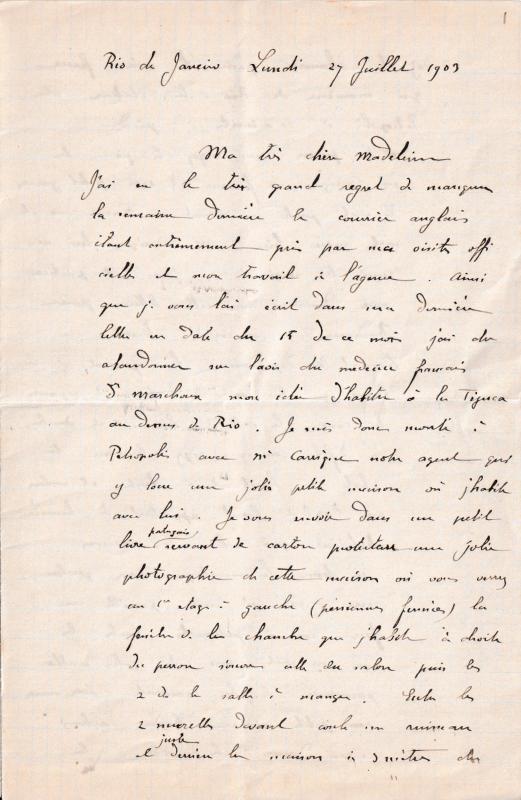 1
Rio de Janeiro Lundi 27 Juillet 1903
Ma très chère Madeleine
J'ai eu le très grand regret de manquer
la semaine dernière le courrier anglais
étant entièrement pris par mes visites offi
cielles et mon travail à l'agence. Ainsi
que je vous l'ai écrit dans ma dernière
lettre en date du 15 de ce mois j'ai du
abandonner sur l'avis du medecin français
Dr Marchoux mon idée d'habiter à la Tijuca
au dessus de Rio. Je suis donc monté à
Petropolis avec Mr Carrique notre agent qui
y loue une jolie petite maison où j'habite
avec lui. Je vous envoie dans un petit
livre portugais servant de carton protecteur une jolie
photographie de cette maison où vous verrez
au 1er étage à gauche (persiennes fermées) la
fenêtre de la chambre que j'habite à droite
du perron s'ouvre celle du salon puis les
2 de la salle à manger. Entre les
2 murettes devant coule un ruisseau
et juste derrière la maison à 3 mètres des